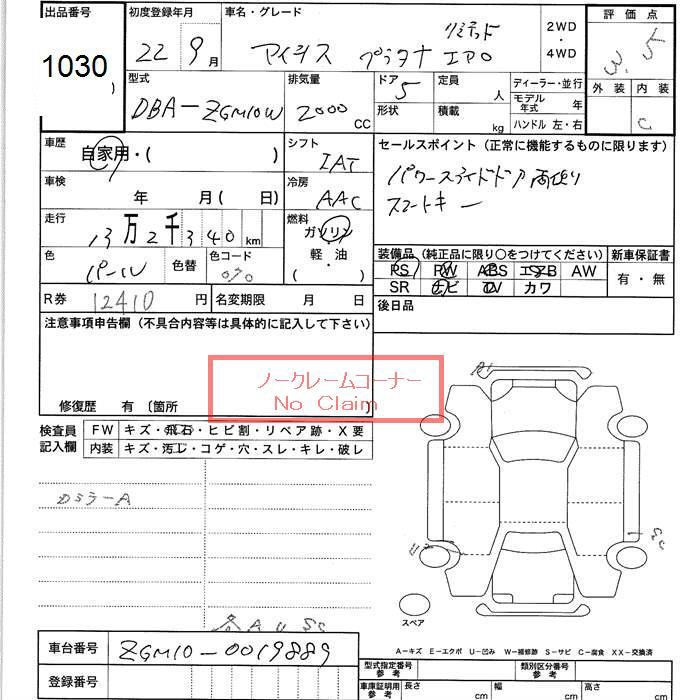 出品番号 初度登録年月 車名・グレード 評価点
1030 22 9月 アイシス プラタナ リミテッド 2WD・4WD 3.5
型式 排気量 ドア 定員 ディーラー・並行 外装 内装
DBA-ZGM10W 2000 CC 5 人 モデル年式 年 C
形状 積載 kg ハンドル 左・右
車歴 自家用・( ) シフト IAT セールスポイント(正常に機能するものに限ります)
車検 年 月( 日) 冷房 AAC パワースライドドア両側
スマートキー
走行 13万2千340km 燃料 ガソリン
軽・油
( ・ )
装備品(純正品に限り○をつけてください) 新車保証書
色 パール 色替 色コード 070 PS PW ABS エアB AW 有・無
SR ナビ TV カワ
R券 12410円 名変期限 月 日 後日品
注意事項申告欄(不具合内容等は具体的に記入して下さい)
ノークレームコーナー
No Claim
修復歴 有〔箇所 〕
検査員記入欄 FW キズ・飛石・ヒビ割・リペア跡・X要
内装 キズ・汚レ・コゲ・穴・スレ・キレ・破レ
DミラーA
A U SC
スペア
A-キズ E-エクボ U-凹み W-補修跡 S-サビ C-腐食 XX-交換済
車台番号 ZGM10-0019889
型式指定番号 参考 類別区分番号 参考
登録番号 車庫証明用 参考 長さ cm 幅 cm 高さ cm